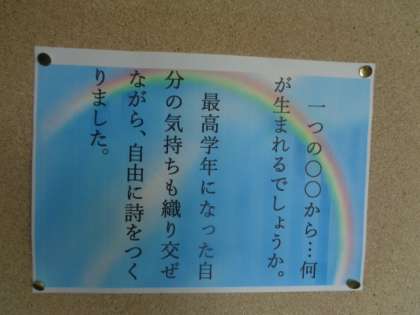 一つの〇〇から…何
が生まれるでしょうか。
最高学年になった自
分の気持ちも織り交ぜ
ながら、自由に詩をつく
りました。